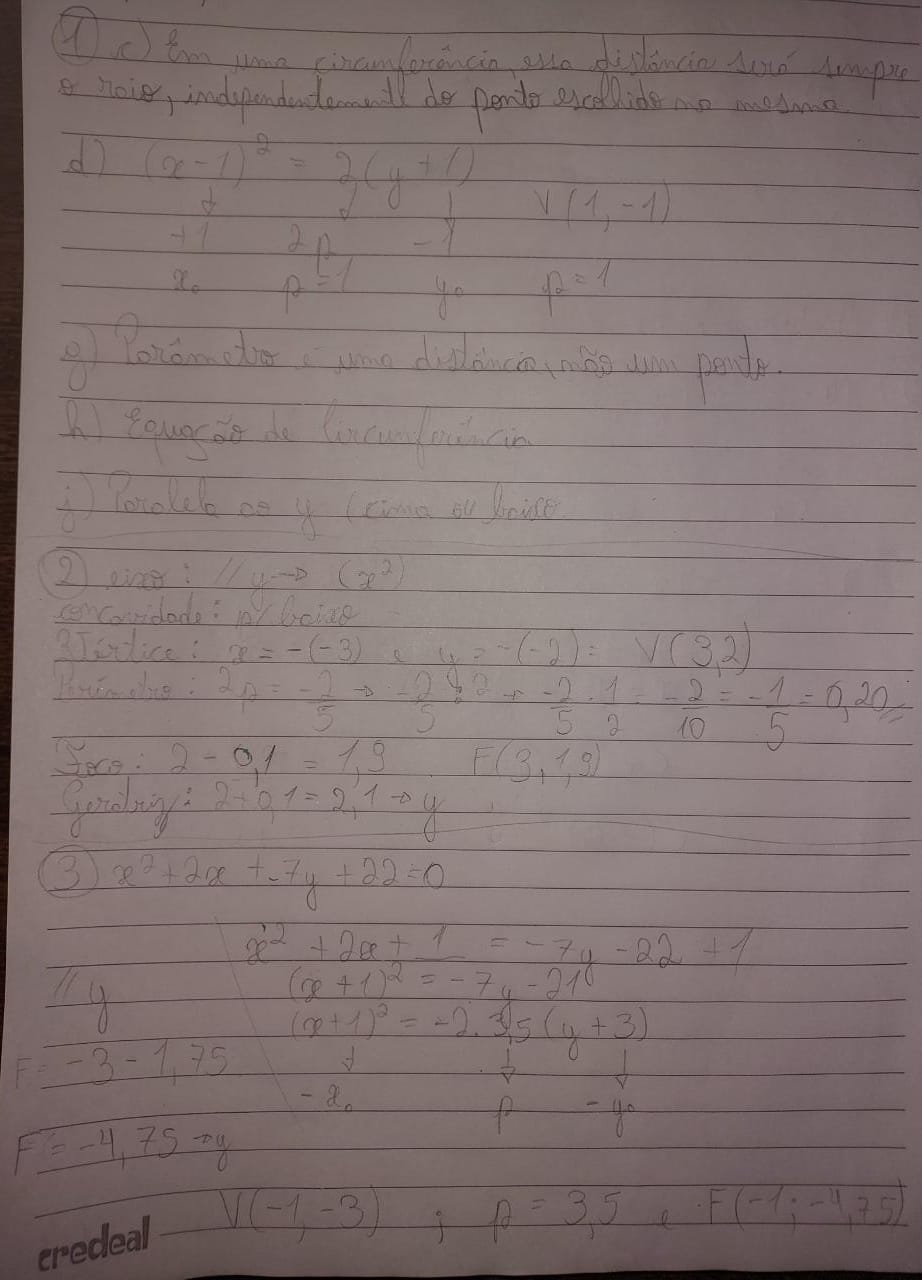 1 c) Em uma circunferência, essa distância será sempre
o raio, independentemente do ponto escolhido na mesma
d) (x-1)² = 2(y+1)
V(1,-1)
+1 2p -1
x₀ p=1 y₀ p=1
g) Parâmetro é uma distância, não um ponto.
h) Equação de circunferência
j) Paralela ao y (cima ou baixo
2) eixo: // y → (x²)
concavidade: p/ baixo
Vértice: x = -(-3) e y = -(-2) = V(3,2)
2p = -2/5 → -2/5 : 2 → -2/5 . 1/2 = -2/10 = -1/5 = 0,20
Foco: 2 - 0,1 = 1,9 F(3,1,9)
2+0,1 = 2,1 → y
3) x²+2x+-7y+22=0
x² + 2x + 1 = -7y -22 +1
// y (x+1)² = -7y -21
(x+1)² = -2.3,5(y+3)
F= -3 - 1,75
-x₀ p -y₀
F = -4,75 → y
V(-1,-3) ; p = 3,5 e F(-1; -4,75)
credeal